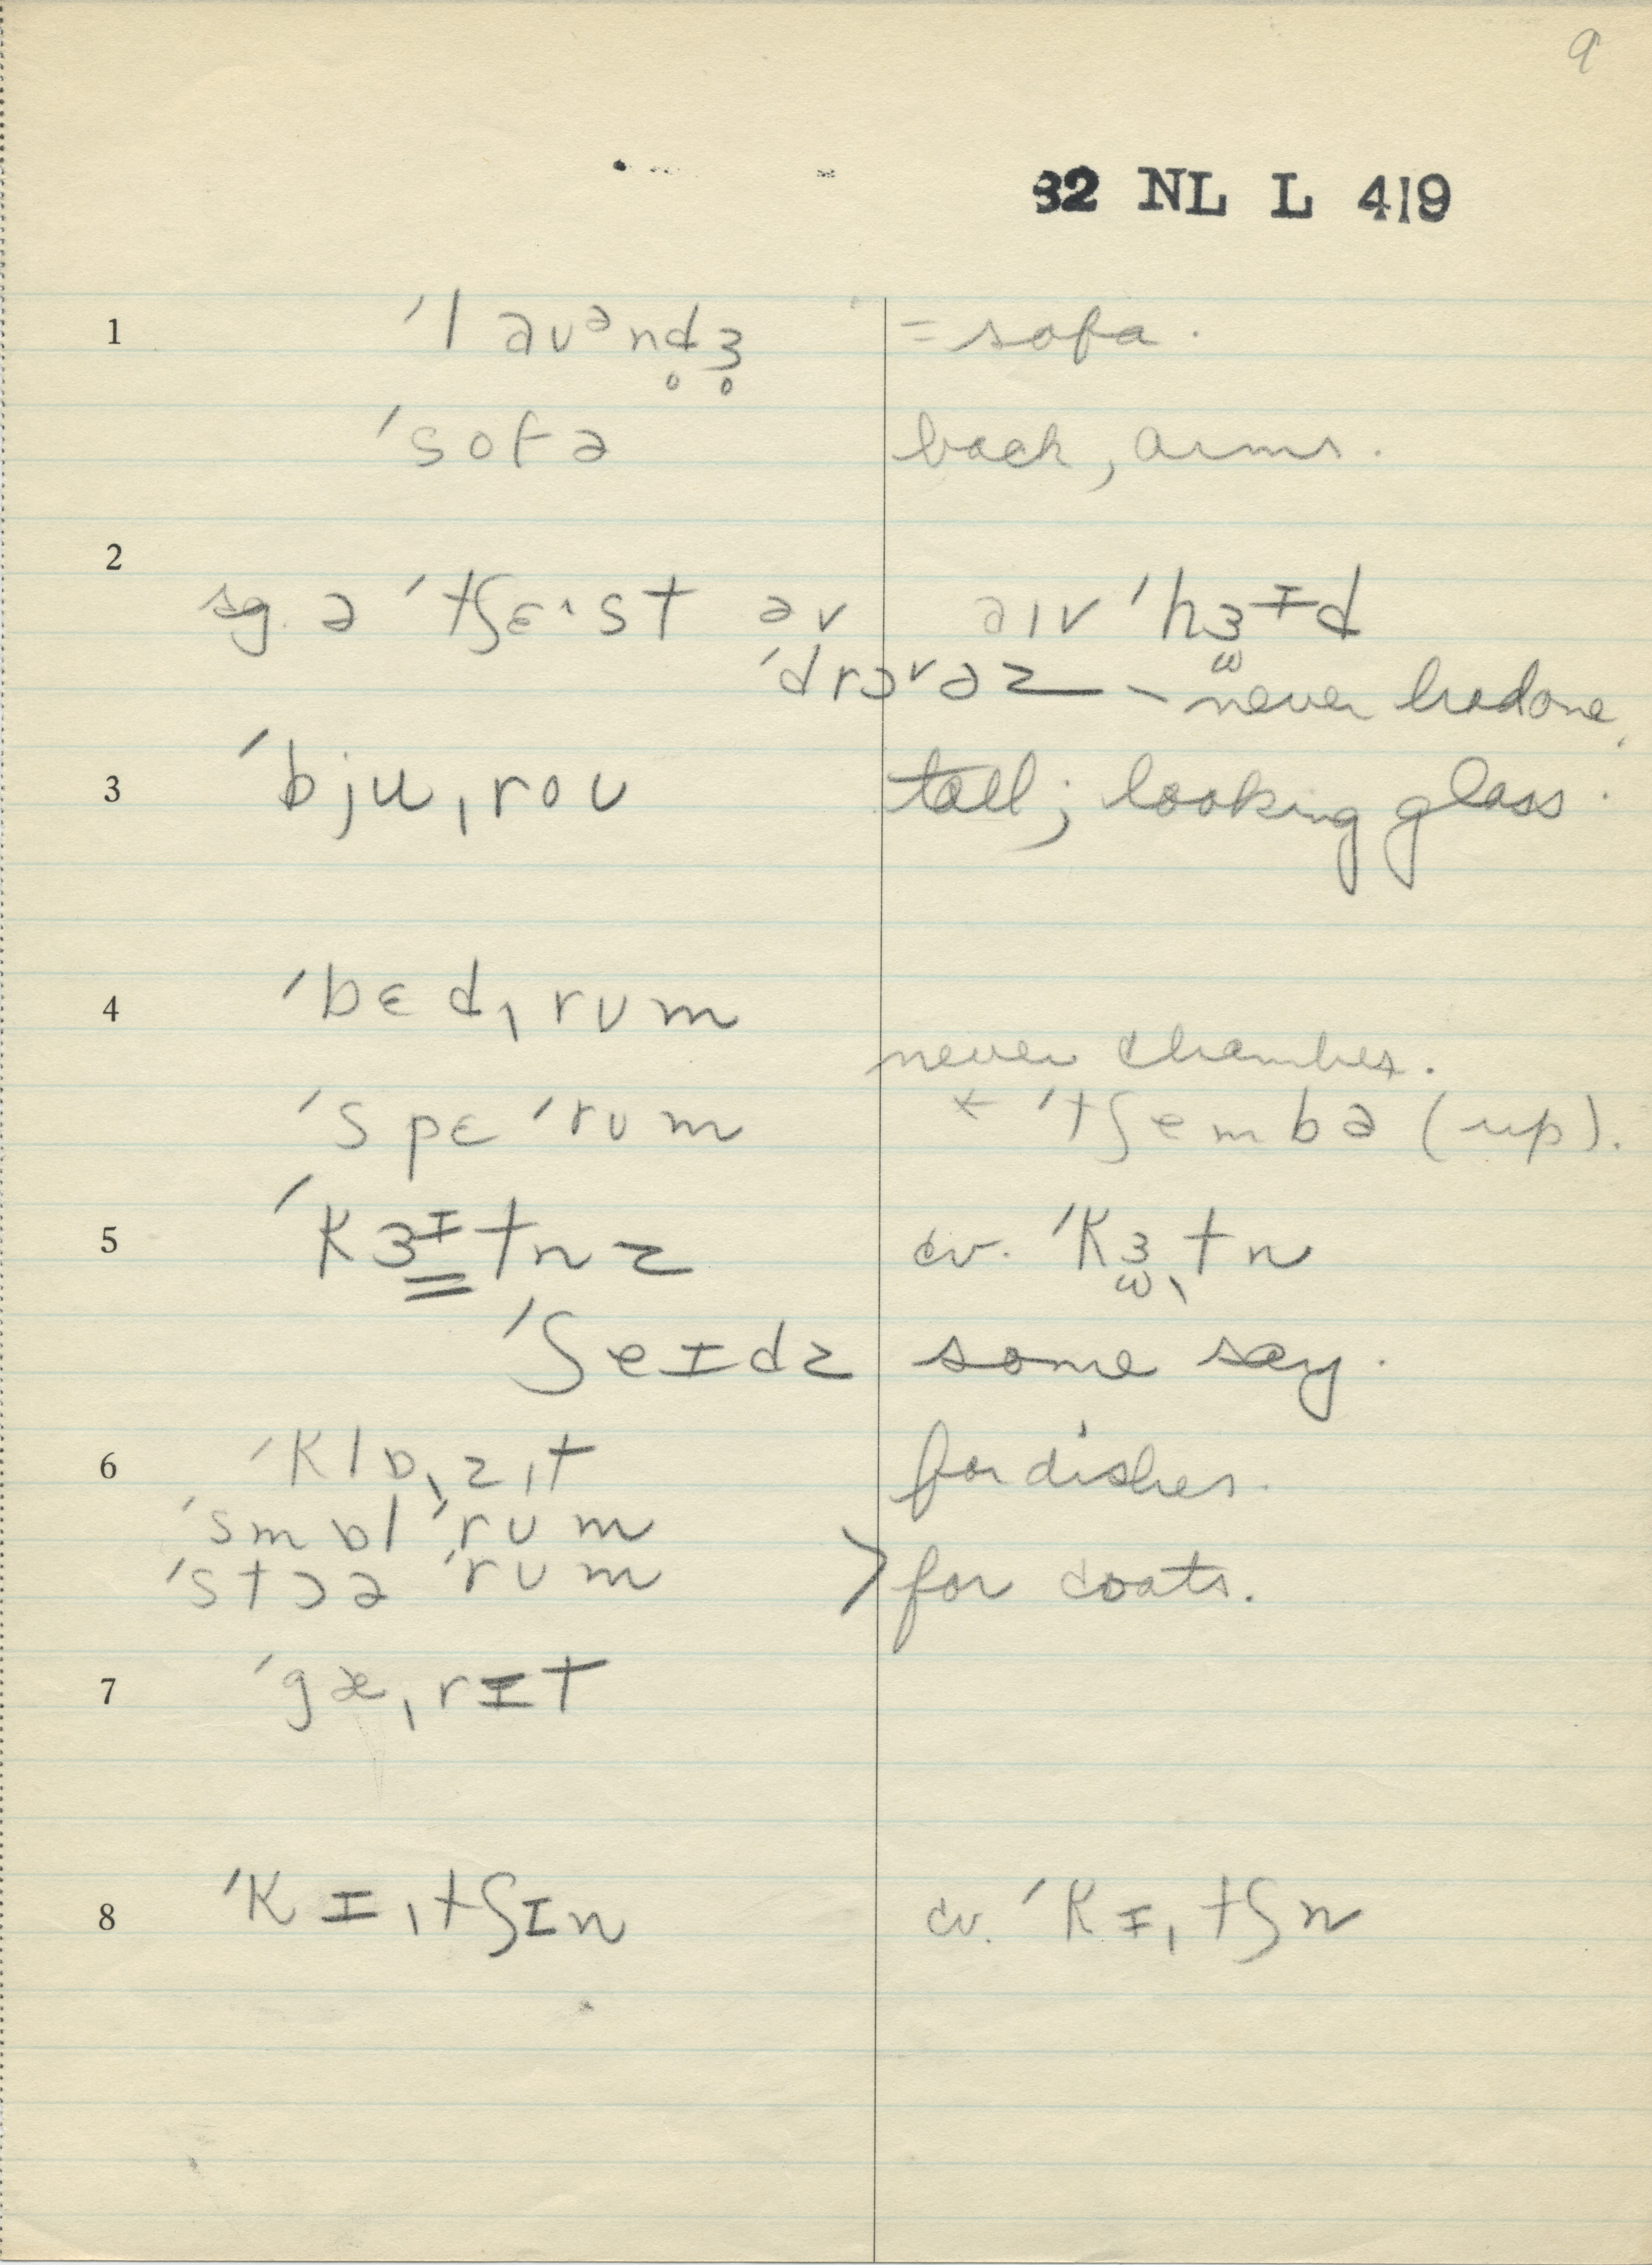 9
82 NL L 419
1 ˈlavᵊnd̥ʒ̊ = sofa.
ˈsofə back, arms.
2
sg. ə ˈtʃɛˑst əv aɪv ˈhɜᶦd
ˈdrɔvəz — never had one.
3 ˈbjuˌroʊ tall; looking glass.
4 ˈbɛdˌrʊm
never chamber.
ˈspɛ ˈrʊm + ˈtʃembə (up).
5 ˈkɜᶦtnz cv. ˈkɜ̫ˌtn
ˈʃeɪdz some say.
6 ˈklɒˌzɪt for dishes.
ˈsmɒl ˈrʊm
ˈstɔə ˈrʊm > for coats.
7 ˈgæˌrɪt
8 ˈkɪˌtʃɪn cv. ˈkɪˌtʃn